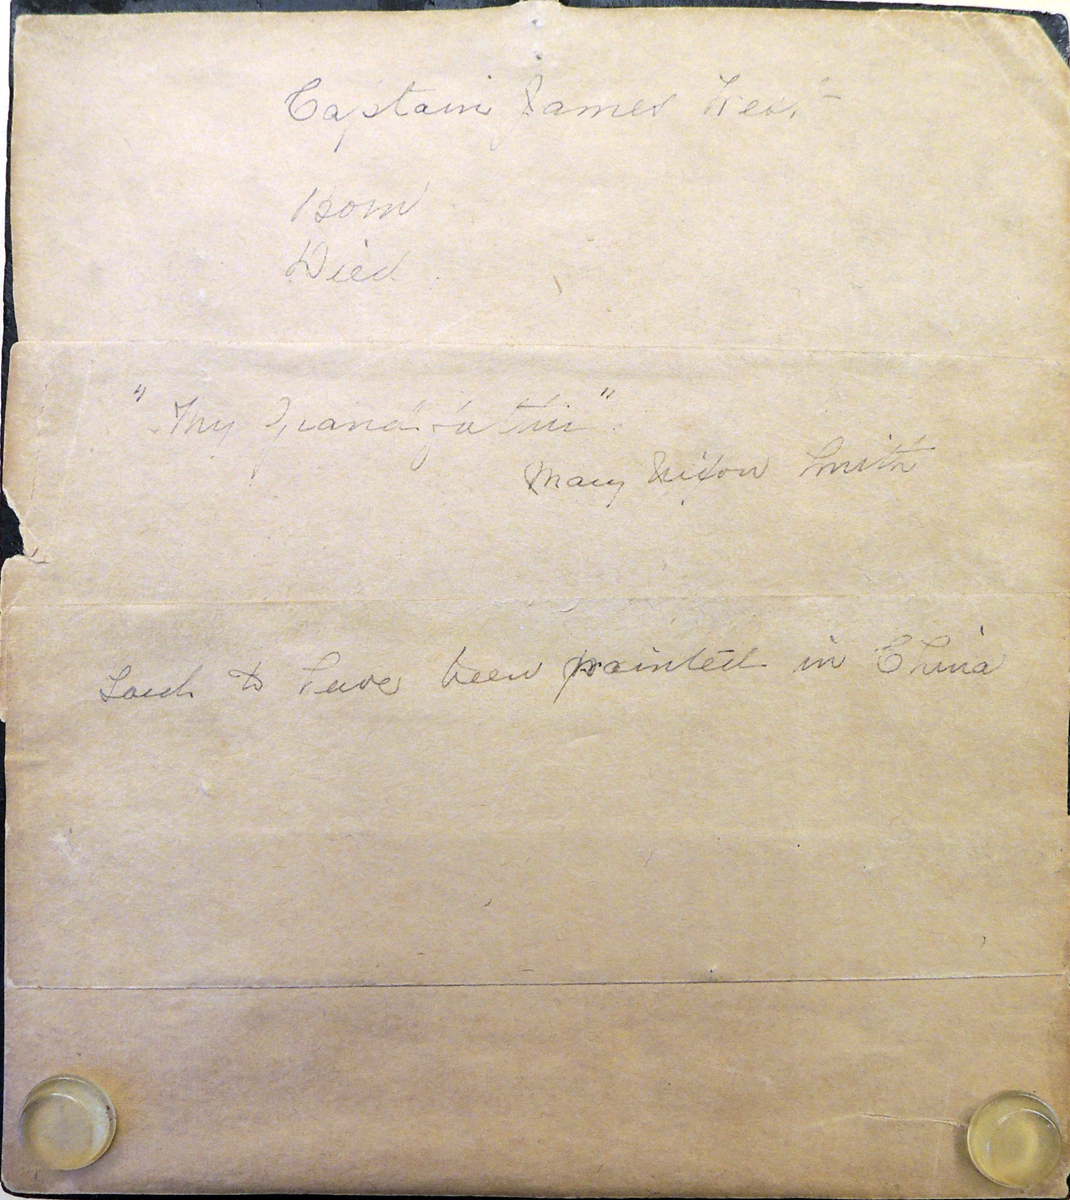 Captain James West
Born
Died
"My Grandfather"
Mary Nixon Smith
Said to have been painted in China